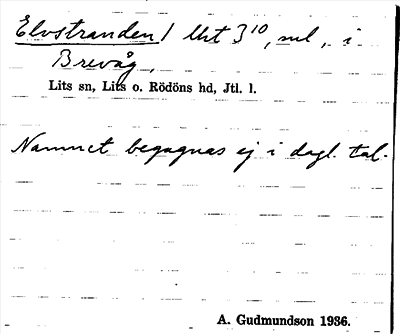 Elvstranden / Urt 3¹⁰, nul, i
Brevåg,
Lits sn, Lits o. Rödöns hd, Jtl. l.
Namnet begagnas ej i dagl. tal.
A. Gudmundson 1936.